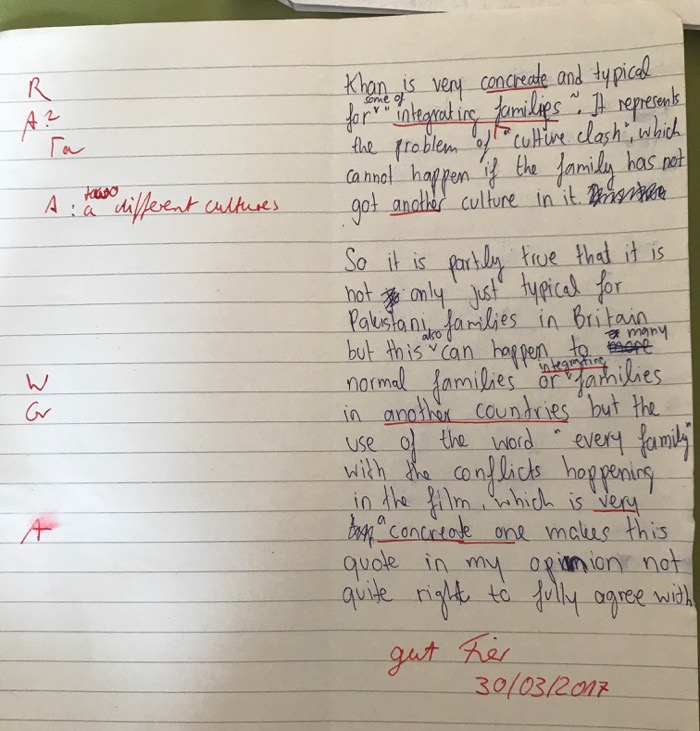 R Khan is very concreate and typical
A? for some of "integrating families". It represents
the problem of "cultive clash", which
cannot happen if the family has not
A: different cultures got another culture in it.
So it is partly true that it is
not only just typical for
Pakistani families in Britain
but this also can happen to many
W normal families or integrating families
Gr in another countries but the
use of the word "every family"
with the conflicts happening
in the film, which is very
A a concreate one makes this
quote in my opinion not
quite right to fully agree with
gut
30/03/2017